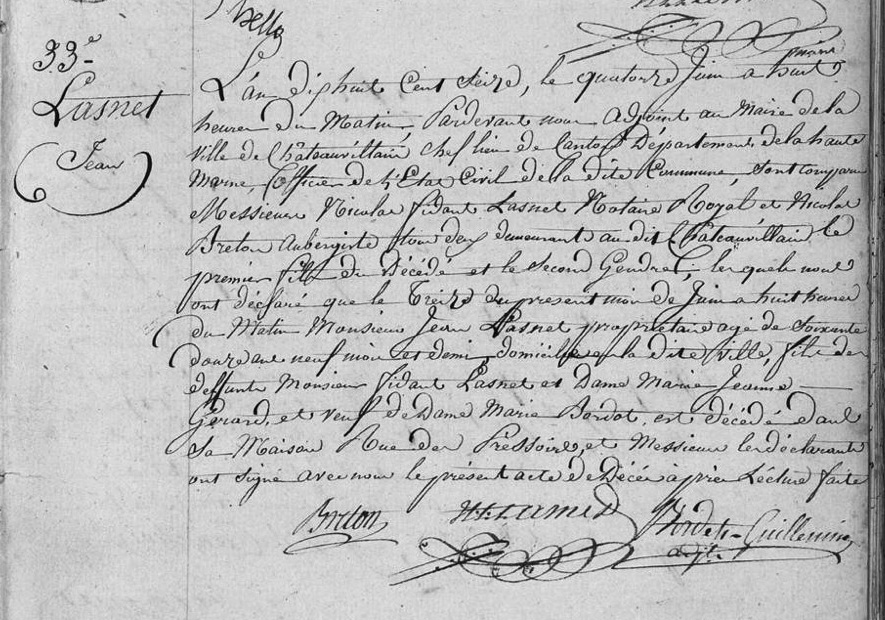 33e
Lasnet
Jean
L'an dix huit Cent Seize, le quatorze Juin a huit
heures du Matin, Pardevant nous adjoint au Maire de la
Ville de Châteauvillain chef lieu de Canton Département de la haute
Marne, Officier de l'Etat Civil de la dite Commune, sont comparu
Messieurs Nicolas fidant Lasnet Notaire Royal et Nicolas
Breton Aubergiste tous deux demeurant au dit Châteauvillain le
premier fils du Décédé et le Second Gendre, les quels nous
ont déclaré que le Treize du present mois de Juin a huit heures
du Matin Monsieur Jean Lasnet propriétaire agé de soixante
douze ans neuf mois et demi, domicilié en la dite Ville, fils des
deffunts Monsieur fidant Lasnet et Dame Marie Jeanne
Gerard, et veuf de Dame Marie Bordot, est décédé dans
sa Maison Rue des Pressoirs, et Messieurs les déclarants
ont signé avec nous le présent acte de Décès après Lecture faite
Breton NfLasnet Bordet-Guillemin
adjt